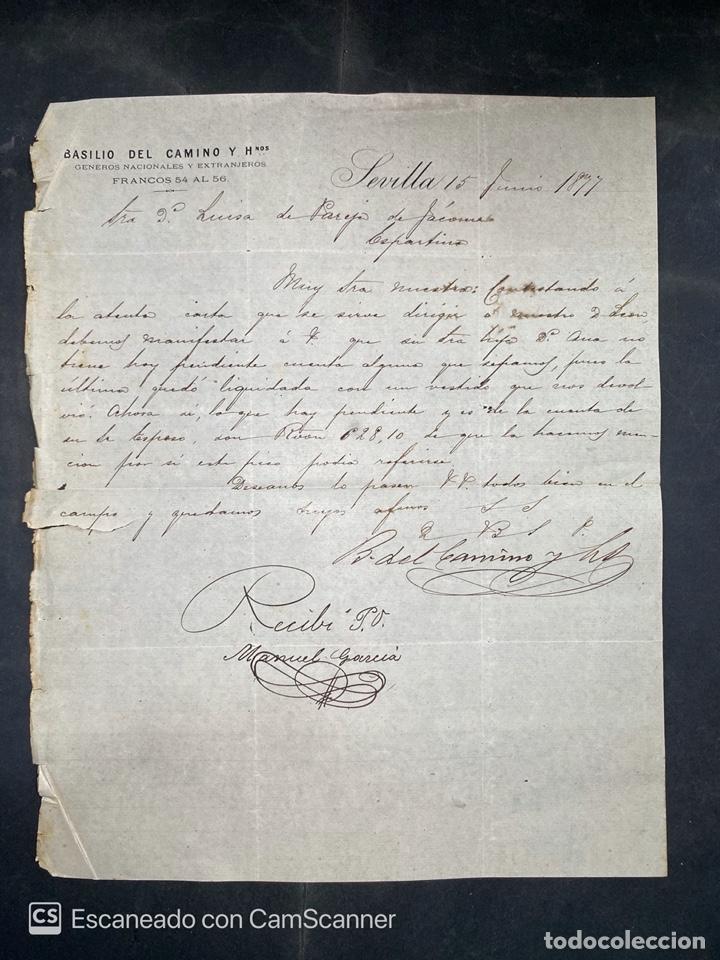 BASILIO DEL CAMINO Y Hnos
GENEROS NACIONALES Y EXTRANJEROS
FRANCOS 54 AL 56.
Sevilla 15 Junio 1877
Sra Dª. Luisa de Pareja de Jácome
Espartina
Muy Sra nuestra: Contestando á
la atenta carta que se sirve dirigir á nuestro D Leon
debemos manifestar á V. que su Sra hija Dª. Ana no
tiene hoy pendiente cuenta alguna que sepamos, pues la
última quedó liquidada con un vestido que nos devol-
vió. Ahora si, lo que hay pendiente y es de la cuenta de
su Sr Esposo, son Rvon 628,10 de que la hacemos men-
cion por si este piso podia referirse.
Deseamos lo pasen VV. todos bien en el
campo y quedamos suyos afmos S S
Q B S P.
B. del Camino y Hos
Recibí P.O.
Manuel García
CS Escaneado con CamScanner
todocoleccion